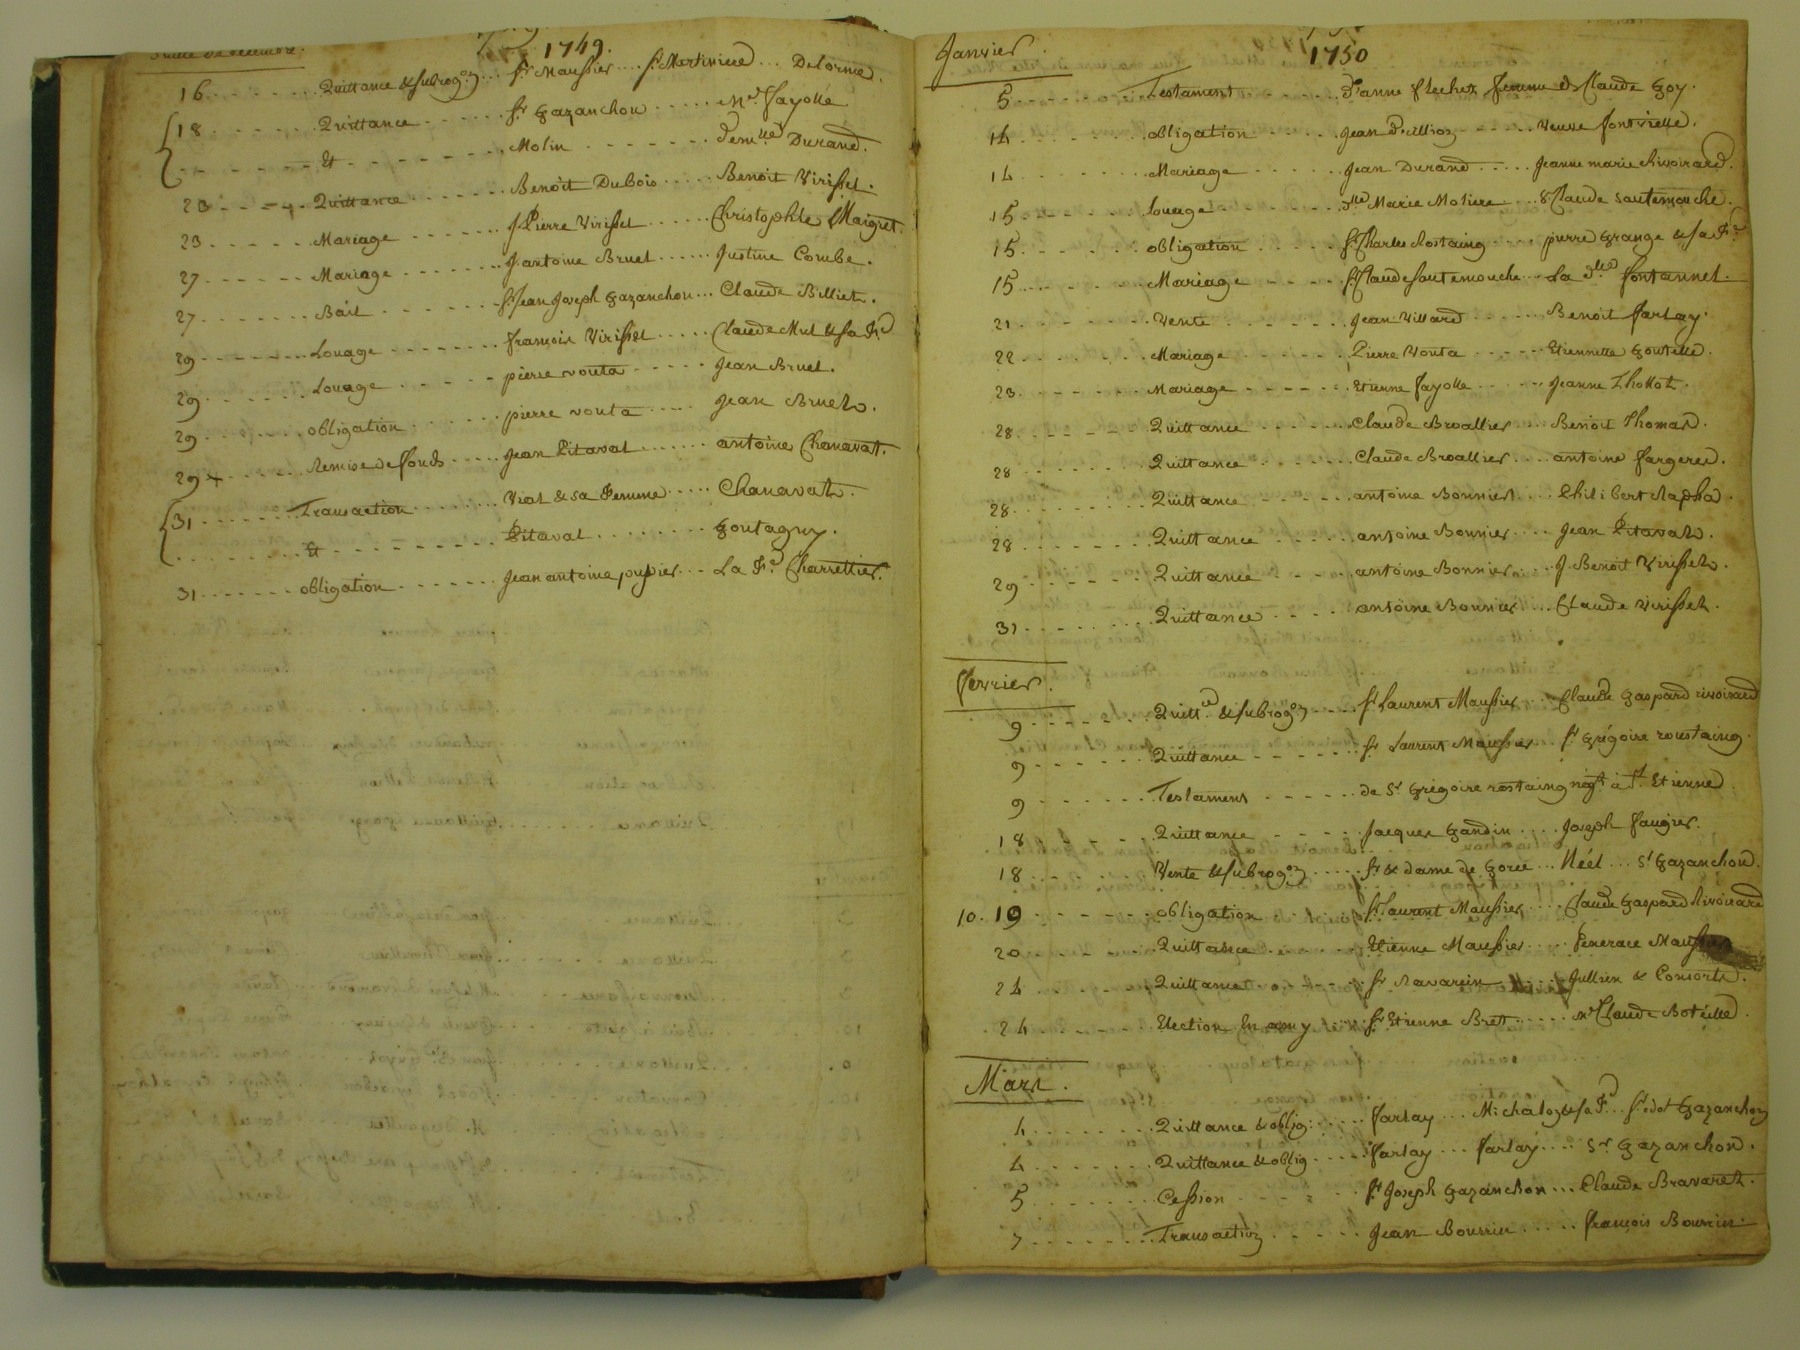 Suitte de decembre.
1749.
16 Quittance & subrogon Sr Maussier Sr Martiniere Delorme.
18 Quittance Sr Gazanchon Me Fayolle
Et Molin demlle Durand.
23 Quittance Benoit Dubois Benoit Virisset.
23 Mariage J Pierre Virisset Christophle Maigret.
27 Mariage J antoine Bruel Justine Combe.
27 Bail Sr Jean Joseph Gazanchon Claude Billiet.
29 Louage françois Virisset Claude Mul & sa fe
29 Louage pierre vouta Jean Bruel.
29 obligation pierre vouta Jean Bruel.
29 Remise de fonds Jean Pitaval antoine Chanavat.
31 Transaction Vial & sa femme Chanavat.
Et Pitaval Goutagny.
31 obligation Jean antoine pupier La fe Charrettier.
Janvier.
1750
5 Testament d'anne flechet femme de Claude Goy.
14 obligation Jean Veuve fontvielle.
14 Mariage Jean Durand Jeanne marie Rivoirard.
15 Louage dlle Marie Moliere & Claude Sautemouche.
15 obligation Sr Charles Rostaing pierre Grange & sa fe
15 Mariage Sr Claude Sautemouche La dlle fontannel.
21 Vente Jean Villard Benoit farlay.
22 Mariage Pierre Vouta Etiennette Goutelle.
23 Mariage Etienne fayolle Jeanne Thollot.
28 Quittance Claude Broallier Benoit Thomas.
28 Quittance Claude Broallier antoine fargere.
28 Quittance antoine Bonnier Philibert Rapha.
28 Quittance antoine Bonnier Jean Pitaval.
29 Quittance antoine Bonnier J Benoit Virisset.
31 Quittance antoine Bonnier Claude Virisset.
fevrier.
9 Quitt.ce & subrogon Sr Laurent Maussier Claude Gaspard rivoirard
9 Quittance Sr Laurent Maussier Sr Grégoire roustaing.
9 Testament de Sr Grégoire rostaing négt à St Etienne
18 Quittance Jacques Gandin Joseph faugier.
18 Vente & subrogon Sr & dame de Gorce Néel Sr Gazanchon.
10. 19 obligation Sr Laurent Maussier Claude Gaspard Rivoirard
20 Quittance Etienne Maussier Maussier
24 Quittance Sr Ravarin Jullien & Consorts.
24 Election En amy Sr Etienne Brett Me Claude Botéille.
Mars.
4 Quittance & oblig: farlay Michalon & sa fe Sr Gazanchon
4 Quittance & oblig farlay farlay Sr Gazanchon.
5 Cession Sr Joseph Gazanchon Claude Bravaret.
7 Transaction Jean Bourrin françois Bourrin.